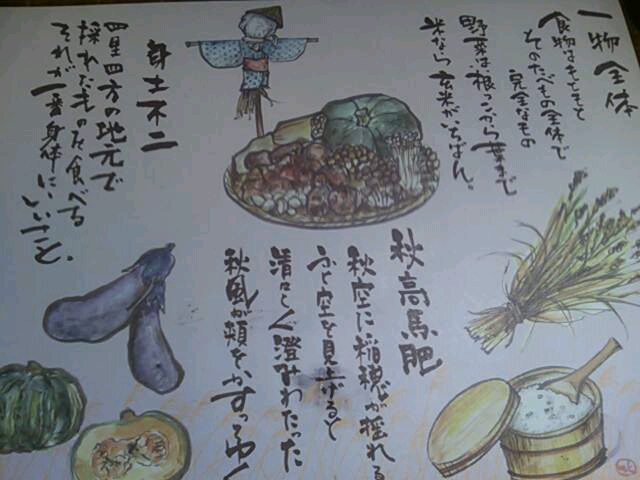 一物全体
食物はもともと
そのたべもの全体で
完全なもの
野菜は根っこから葉まで
米なら玄米がいちばん。
身土不二
四里四方の地元で
採れたものを食べる
それが一番身体にいいこと。
秋高馬肥
秋空に稲穂が揺れる
ふと空を見上げると
清々しく澄みわたった
秋風が頬をかすってゆく